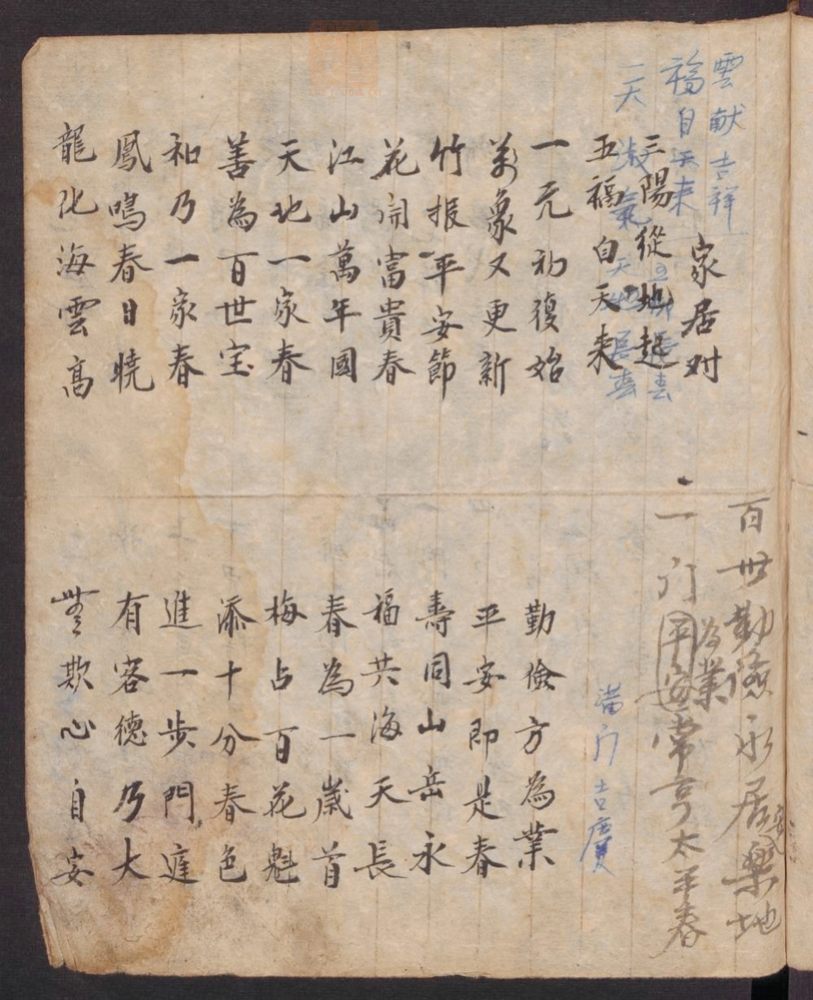 雲献吉祥
福自天来
家居对
三陽從地起
五福自天来
一元初復始
萬象又更新
竹报平安節
花開富貴春
江山萬年國
天地一家春
善為百世宝
和乃一家春
鳳鳴春日曉
龍化海雲高
百世勤儉永居樂地
為業
一门平安常亨太平春
满门吉慶
勤儉方為業
平安即是春
壽同山岳永
福共海天長
春為一歲首
梅占百花魁
添十分春色
進一步門庭
有容德乃大
無欺心自安